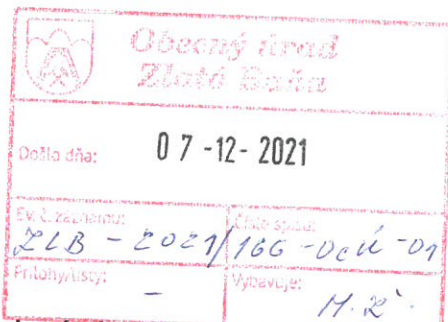 Obecný úrad
Zlatá Baňa
Došlo dňa: 07-12-2021
Ev. č. záznamu: Číslo spisu:
ZLB - 2021/166-OcÚ-01
Prílohy/listy: Vybavuje:
-